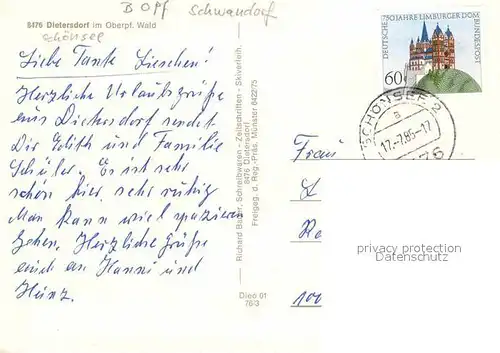 B OPf Schwandorf
8476 Dietersdorf im Oberpf. Wald
schönsee
Liebe Tante Lieschen!
Herzliche Urlaubsgrüße
aus Dietersdorf sendet
Dir Edith und Familie
Schüler. Es ist sehr
schön hier, sehr ruhig
Man kann viel spazieren
gehen. Herzliche Grüße
auch an Hanni und
Heinz.
Richard Bauer, Schreibwaren - Zeitschriften - Skiverleih,
8476 Dietersdorf
Freigeg. d. Reg.-Präs. Münster 642275
Dieo 01
76/3
DEUTSCHE BUNDESPOST
750 JAHRE LIMBURGER DOM
60
SCHÖNSEE 2
a
17.-7.85-17
Frau
100
privacy protection
Datenschutz